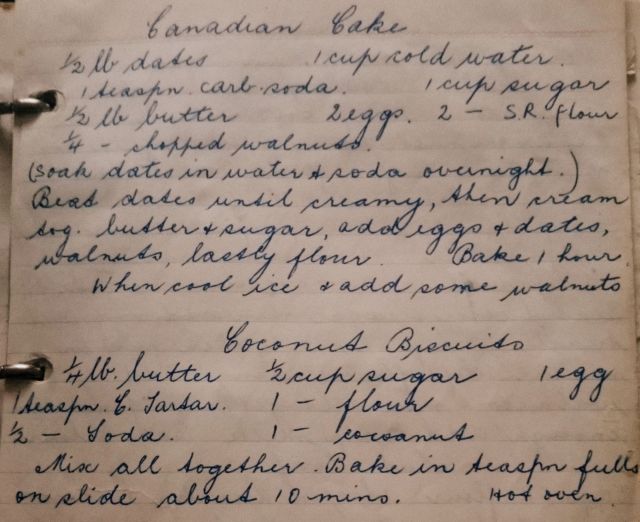 Canadian Cake
½ lb dates 1 cup cold water.
1 teaspn. carb. soda. 1 cup sugar
½ lb butter 2 eggs. 2 — S.R. flour
¼ - chopped walnuts.
(soak dates in water & soda overnight.)
Beat dates until creamy, then cream
tog. butter & sugar, add eggs & dates,
walnuts, lastly flour. Bake 1 hour.
When cool ice & add some walnuts
Coconut Biscuits
¼ lb. butter ½ cup sugar 1 egg
1 teaspn. C. Tartar. 1 — flour
½ — Soda. 1 — cocoanut
Mix all together. Bake in teaspn fulls
on slide about 10 mins. Hot oven.